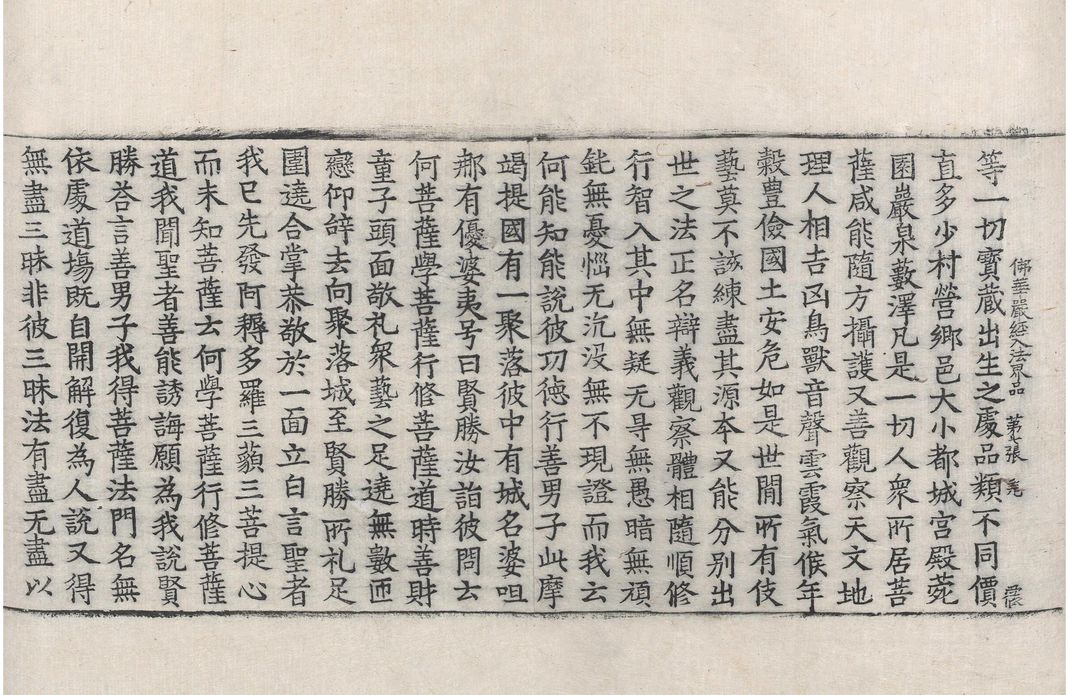 佛華嚴經入法界品 第七張
等一切寳蔵出生之䖏品類不同價
直多少村營鄉邑大小都城宮殿菀
園巖泉藪澤凡是一切人衆所居菩
薩咸能隨方攝護又善觀察天文地
理人相吉凶鳥獸音聲雲霞氣候年
糓豊儉國土安危如是世閒所有伎
藝莫不該練盡其源本又能分别出
世之法正名辯義觀察體相隨順修
行智入其中無疑无㝵無愚暗無頑
鈍無憂惱无沉没無不現證而我云
何能知能說彼功徳行善男子此摩
竭提國有一聚落彼中有城名婆呾
郍有優婆夷号曰賢勝汝詣彼問云
何菩薩學菩薩行修菩薩道時善財
童子頭面敬礼衆藝之足遶無數匝
戀仰辝去向聚落城至賢勝所礼足
圍遶合掌恭敬於一面立白言聖者
我已先發阿耨多羅三藐三菩提心
而未知菩薩云何學菩薩行修菩薩
道我聞聖者善能誘誨願為我說賢
勝荅言善男子我得菩薩法門名無
依䖏道場旣自開解復為人說又得
無盡三昧非彼三昧法有盡无盡以